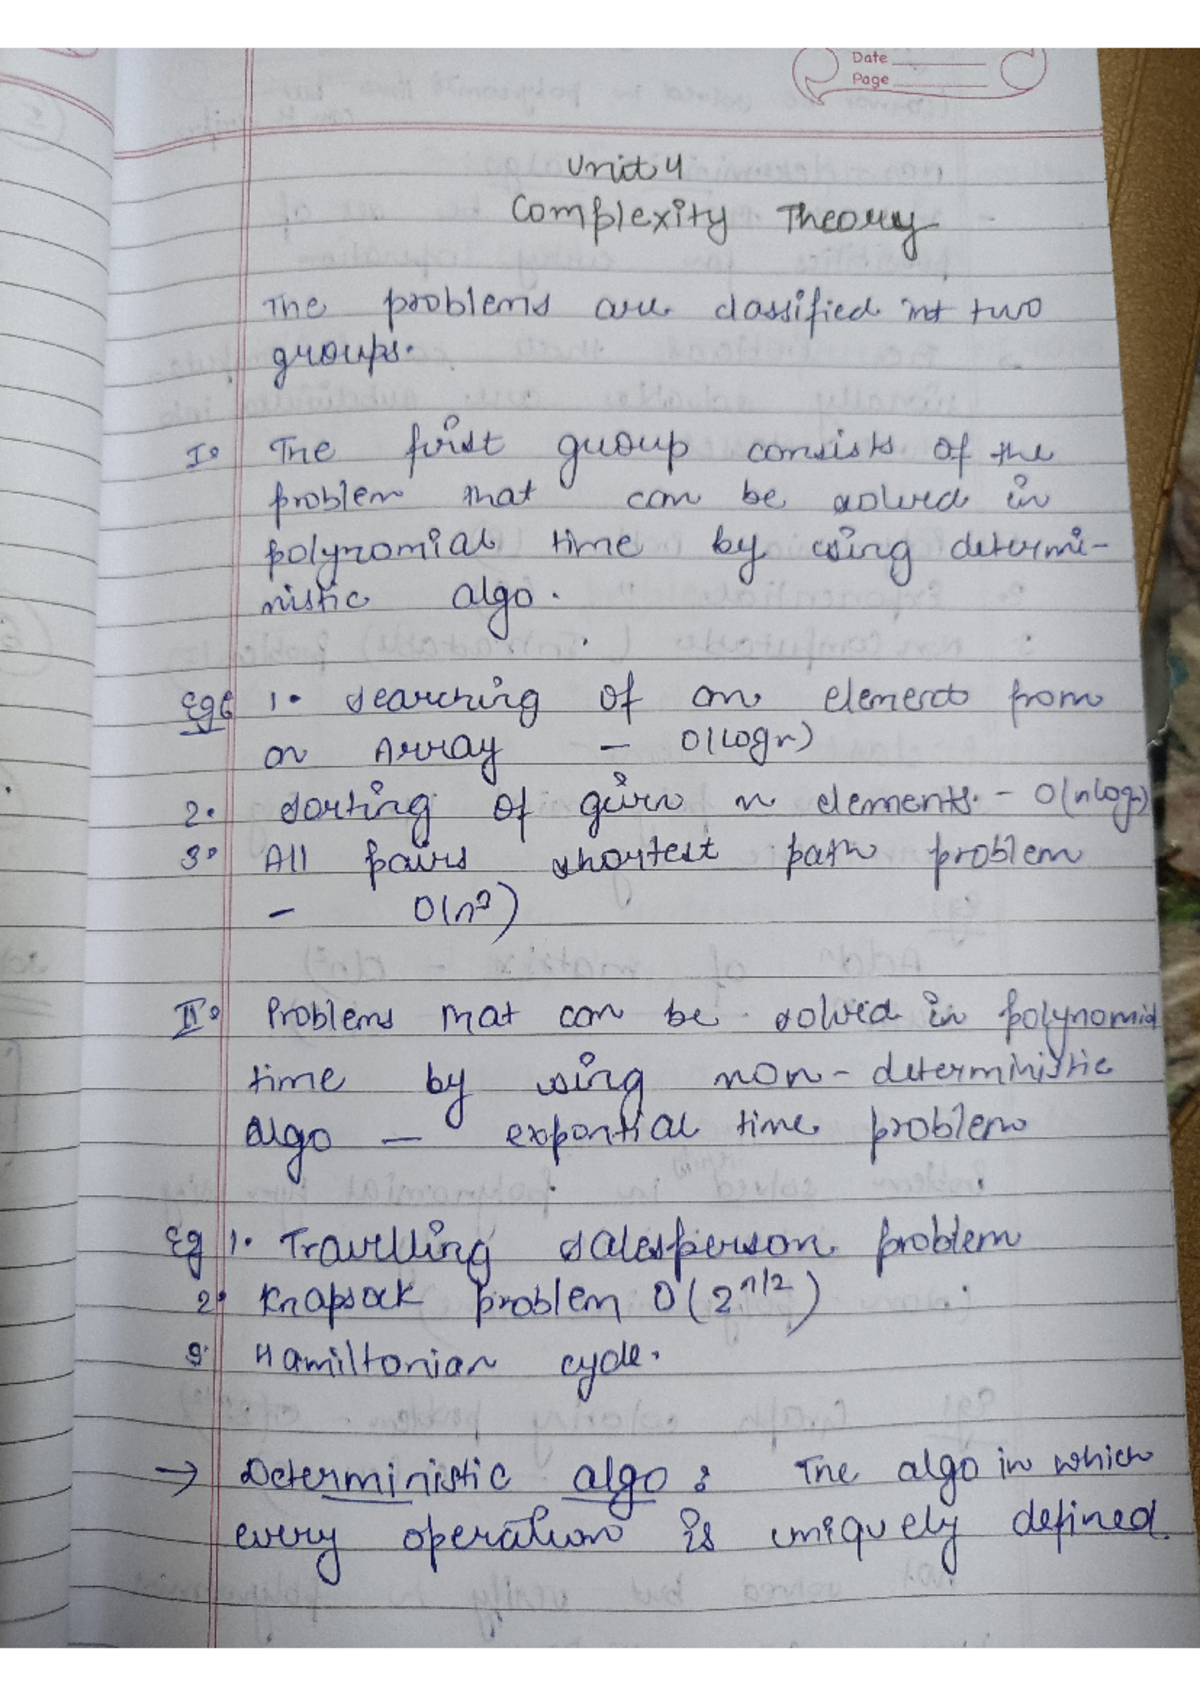 Date
Page
Unit 4
Complexity Theory
The problems are classified int two
groups.
I. The first group consists of the
problem that can be solved in
polynomial time by using determi-
nistic algo.
Eg: 1. Searching of an element from
an Array - O(logn)
2. Sorting of given n elements. - O(nlogn)
3. All pairs shortest path problem
- O(n³)
II. Problems that can be solved in polynomial
time by using non-deterministic
algo - expontial time problem
Eg 1. Travelling salesperson problem
2. Knapsack problem O(2^n/2)
3. Hamiltonian cycle.
→ Deterministic algo: The algo in which
every operation is uniquely defined.